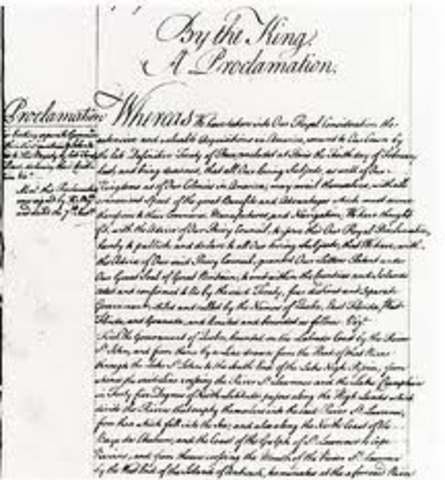 By the King.
A Proclamation.
Proclamation
Whereas We have taken into Our Royal Consideration the
extensive and valuable Acquisitions in America, secured to Our Crown by
the late Definitive Treaty of Peace, concluded at Paris the Tenth day of February
last, and being desirous, that all Our loving Subjects, as well of Our
Kingdoms as of Our Colonies in America, may avail themselves, with all
convenient Speed, of the great Benefits and Advantages which must accrue
therefrom to their Commerce, Manufactures, and Navigation; We have thought
fit, with the Advice of Our Privy Council, to issue this Our Royal Proclamation,
hereby to publish and declare to all Our loving Subjects, that We have, with
the Advice of Our said Privy Council, granted Our Letters Patent under
Our Great Seal of Great Britain, to erect within the Countries and Islands
ceded and confirmed to Us by the said Treaty, four distinct and separate
Governments, stiled and called by the Names of Quebec, East Florida, West
Florida, and Grenada, and limited and bounded as follows Viz.
First The Government of Quebec, bounded on the Labrador Coast by the River
St. John, and from thence by a Line drawn from the Head of that River
through the Lake St. John to the South End of the Lake Nigh Pissin; from
whence the said Line crossing the River St. Lawrence and the Lake Champlain
in Forty five Degrees of North Latitude, passes along the High Lands which
divide the Rivers that empty themselves into the said River St. Lawrence,
from those which fall into the Sea; and also along the North Coast of the
Baye des Chaleurs, and the Coast of the Gulph of St. Lawrence to Cape
Rosieres, and from thence crossing the Mouth of the River St. Lawrence
by the West End of the Island of Anticosti, terminates at the aforesaid River